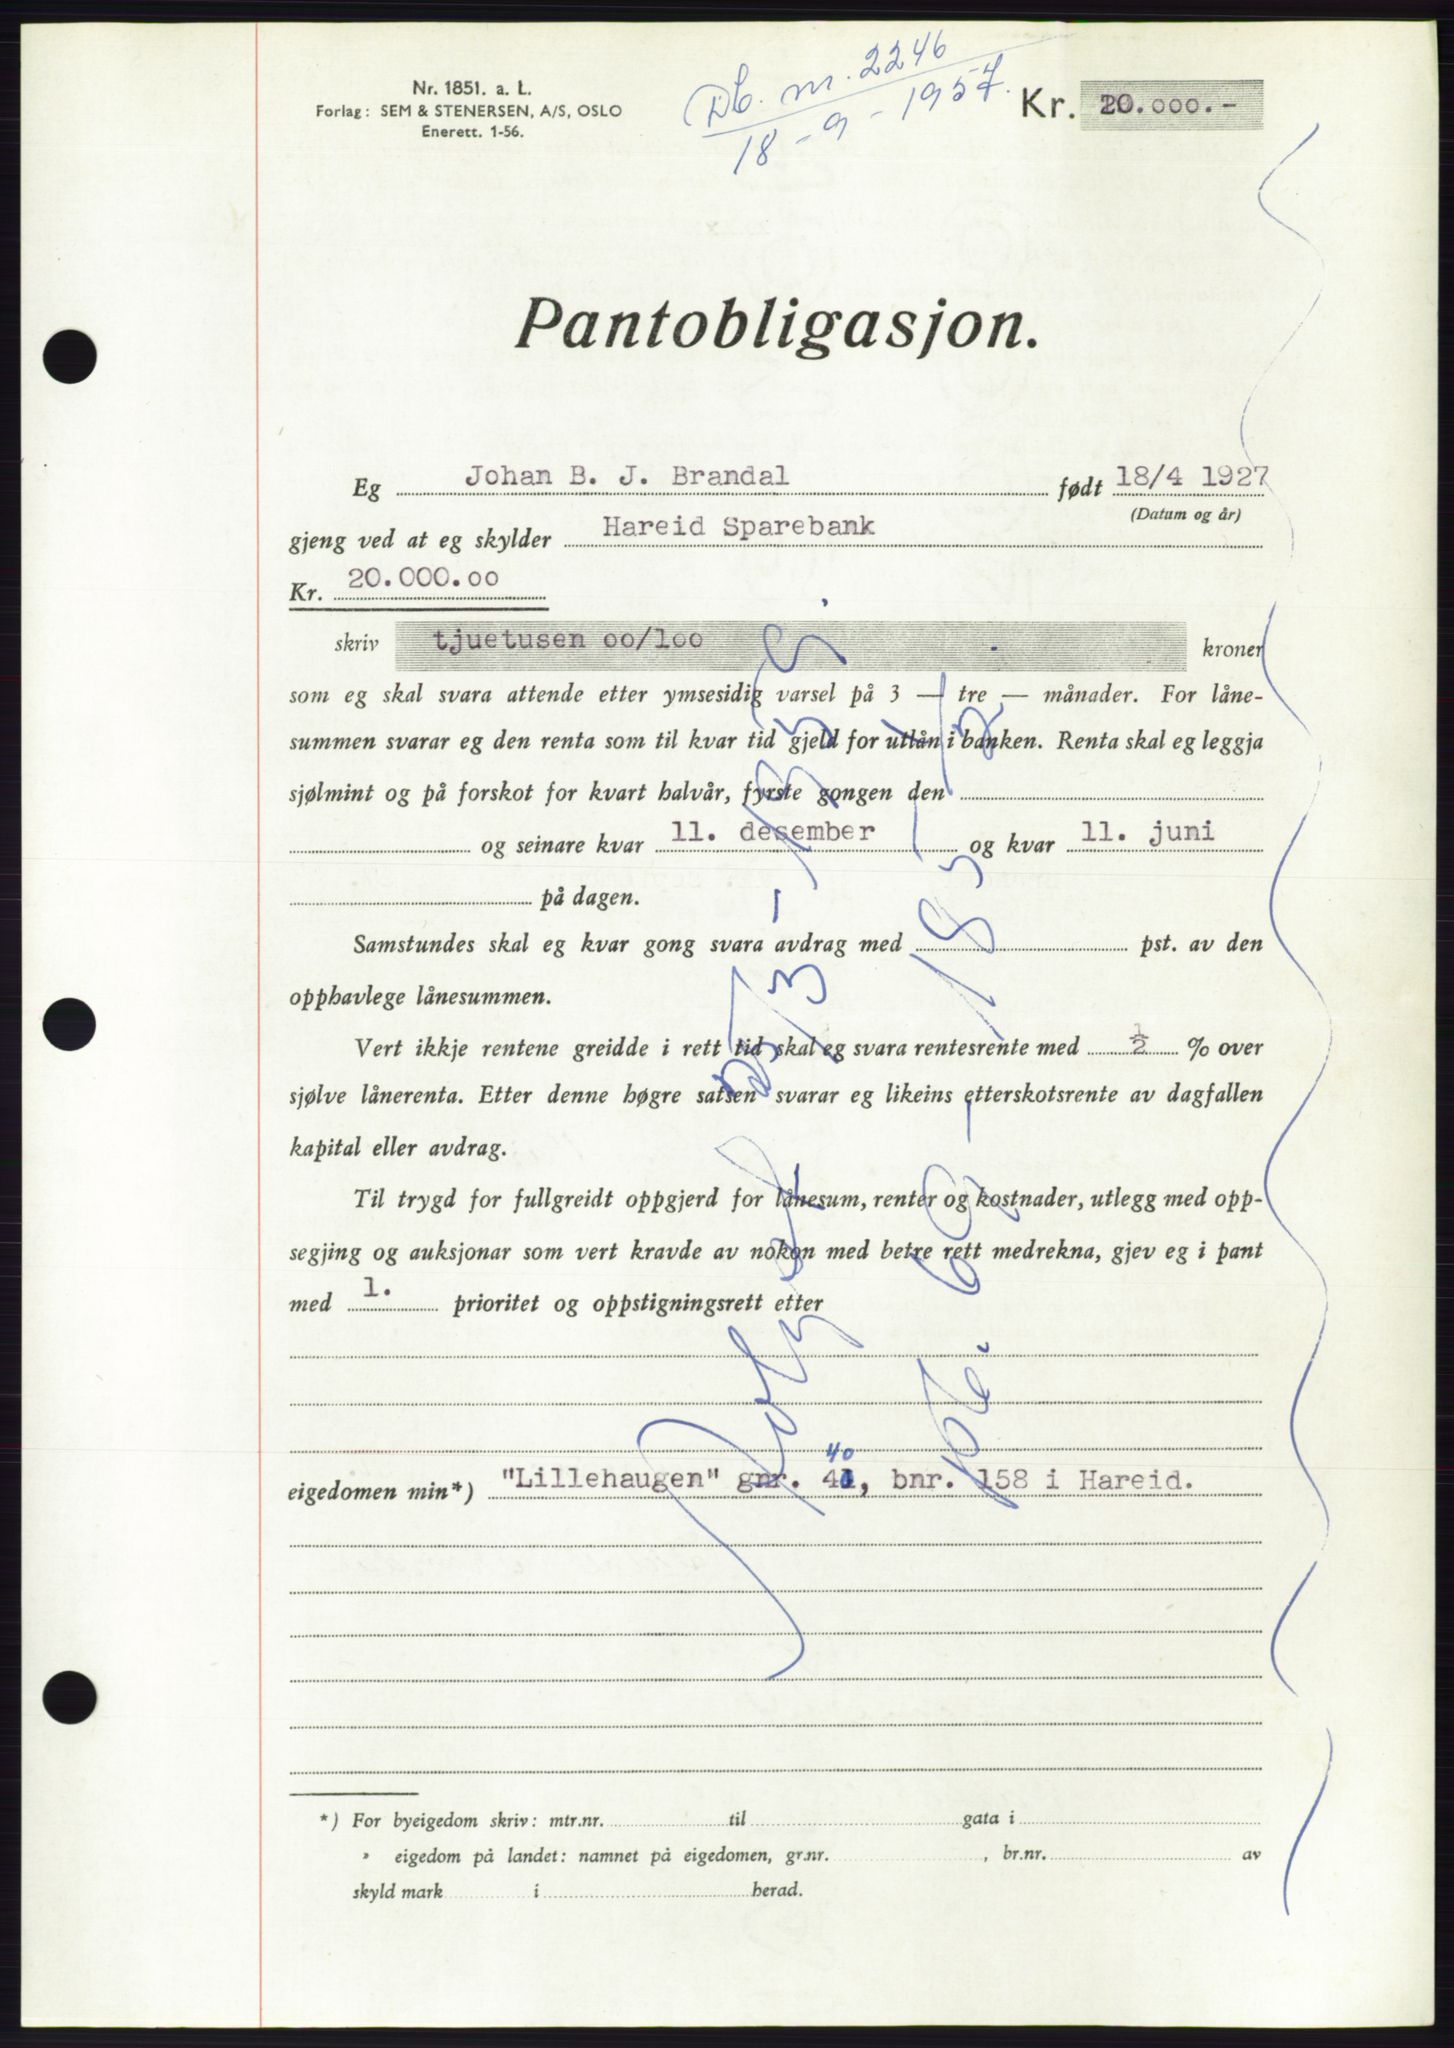 Nr. 1851. a. L.
Forlag: SEM & STENERSEN, A/S, OSLO
Enerett. 1-56.
Db. nr. 2246
18-9-1957.
Kr. 20.000.-
Pantobligasjon.
Eg Johan B. J. Brandal født 18/4 1927
(Datum og år)
gjeng ved at eg skylder Hareid Sparebank
Kr. 20.000.oo
skriv tjuetusen oo/loo kroner
som eg skal svara attende etter ymsesidig varsel på 3 — tre — månader. For låne-
summen svarar eg den renta som til kvar tid gjeld for utlån i banken. Renta skal eg leggja
sjølmint og på forskot for kvart halvår, fyrste gongen den
og seinare kvar 11. desember og kvar 11. juni
på dagen.
Samstundes skal eg kvar gong svara avdrag med pst. av den
opphavlege lånesummen.
Vert ikkje rentene greidde i rett tid skal eg svara rentesrente med ½ % over
sjølve lånerenta. Etter denne høgre satsen svarar eg likeins etterskotsrente av dagfallen
kapital eller avdrag.
Til trygd for fullgreidt oppgjerd for lånesum, renter og kostnader, utlegg med opp-
segjing og auksjonar som vert kravde av nokon med betre rett medrekna, gjev eg i pant
med 1. prioritet og oppstigningsrett etter
40
eigedomen min*) "Lillehaugen" gnr. 41, bnr. 158 i Hareid.
*) For byeigedom skriv: mtr.nr. til gata i
» eigedom på landet: namnet på eigedomen, gr.nr. , br.nr. av
skyld mark i herad.